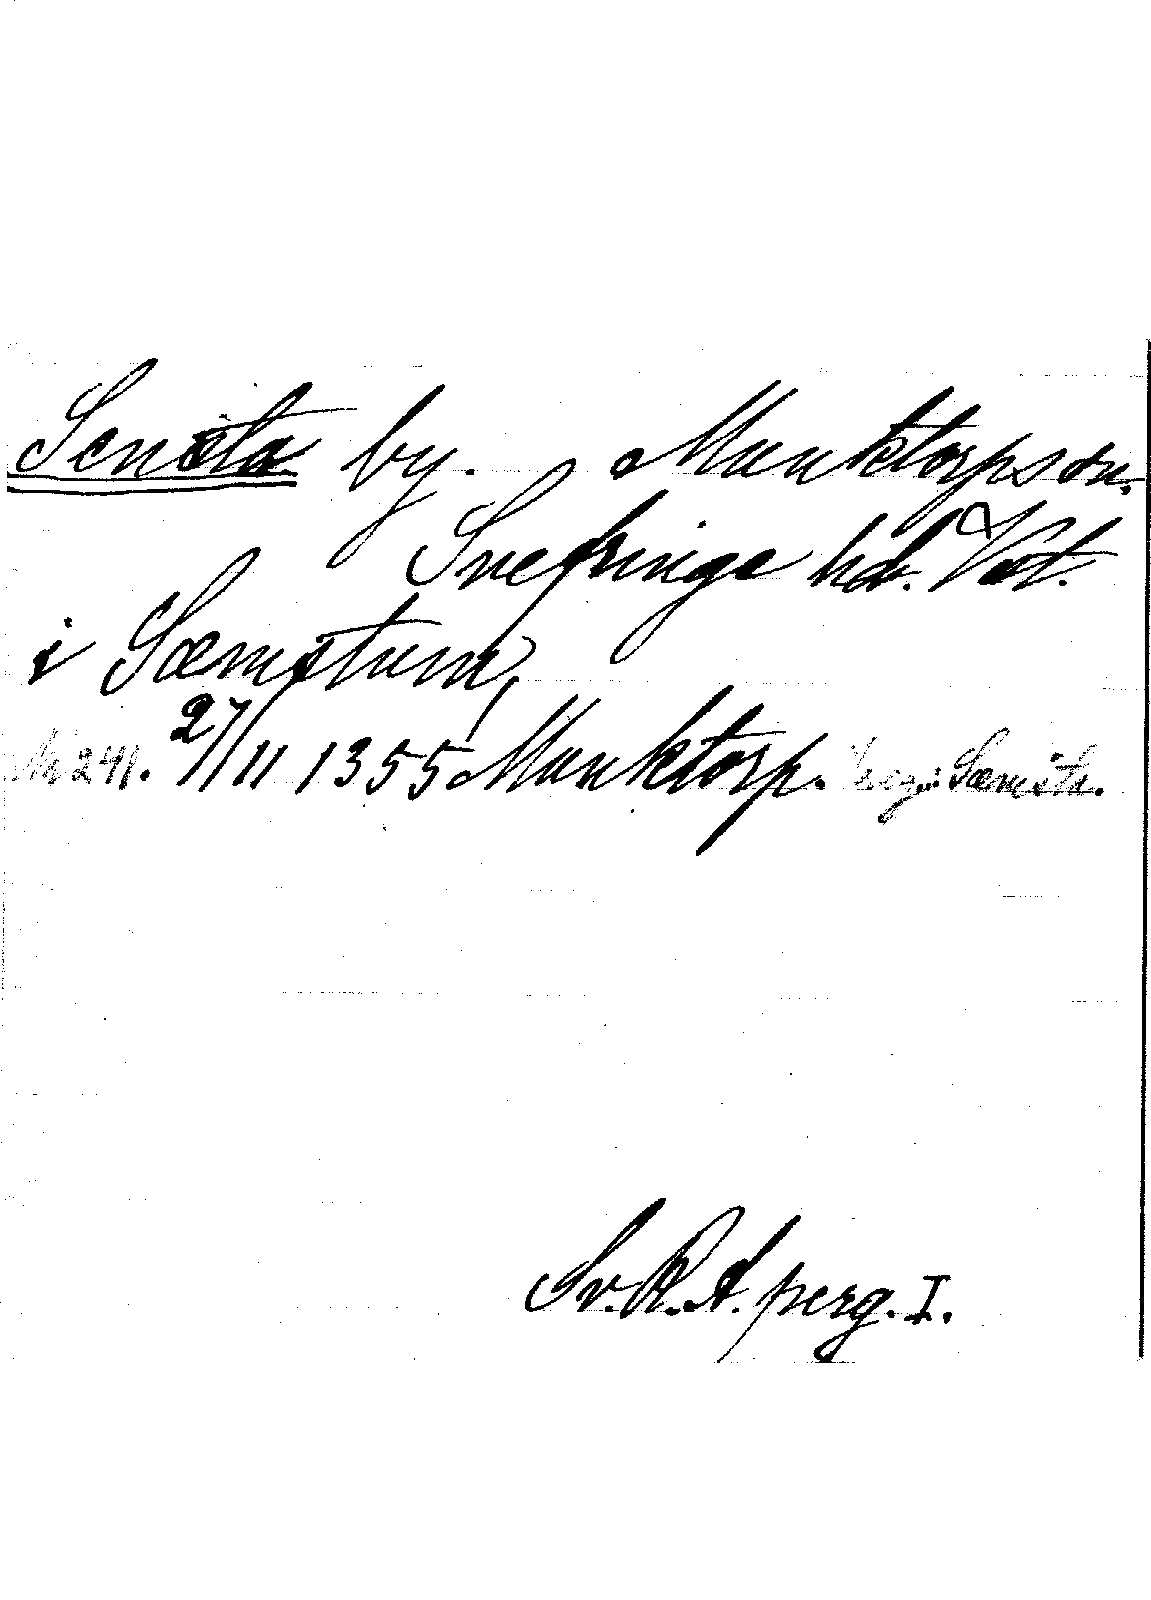 Sensta by. Munktorps sn.
Snefringe hd. Vst.
i Sæmstum,
Nr 241. 27/11 1355 Munktorp. Sæmstu.
Sv. R. A. perg. I.